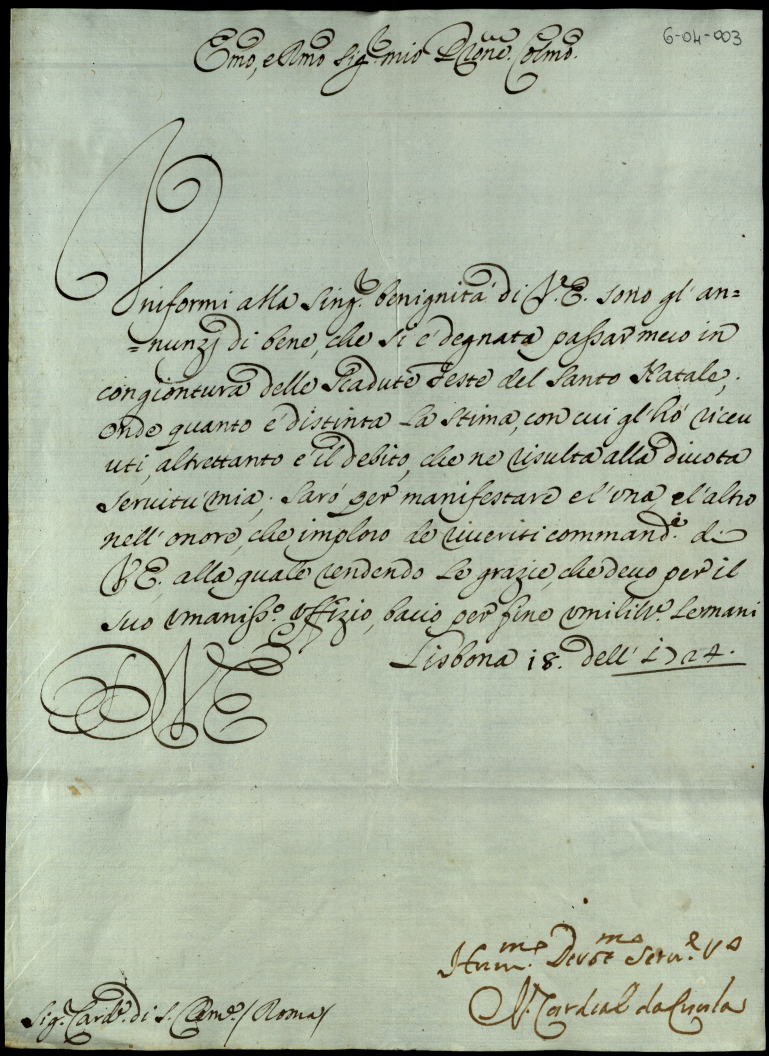 6-04-003
Emo, e Rmo Sigr. mio Prone. Colmo.
Uniformi alla Singr. benignità di V.E. sono gl' an=
=nunzj di bene, che si è degnata passar meco in
congiontura delle Scadute Feste del Santo Natale;
onde quanto è distinta la stima, con cui gl'hò riceu
uti, altrettanto è il debito, che ne risulta alla diuota
seruitù mia; Sarò per manifestare e l'una, e l'altro
nell' onore, che imploro de riueriti command.i di
V.E. alla quale rendendo le grazie, che deuo per il
suo umaniss.o Uffizio, bacio per fine umilite. le mani
DVE Lisbona 18. dell' 1724.
Hum.mo Devot.mo Serv.e V.o
N. Cardeal da Cunha
Sigr. Card.e di S. Clem.e / Roma /